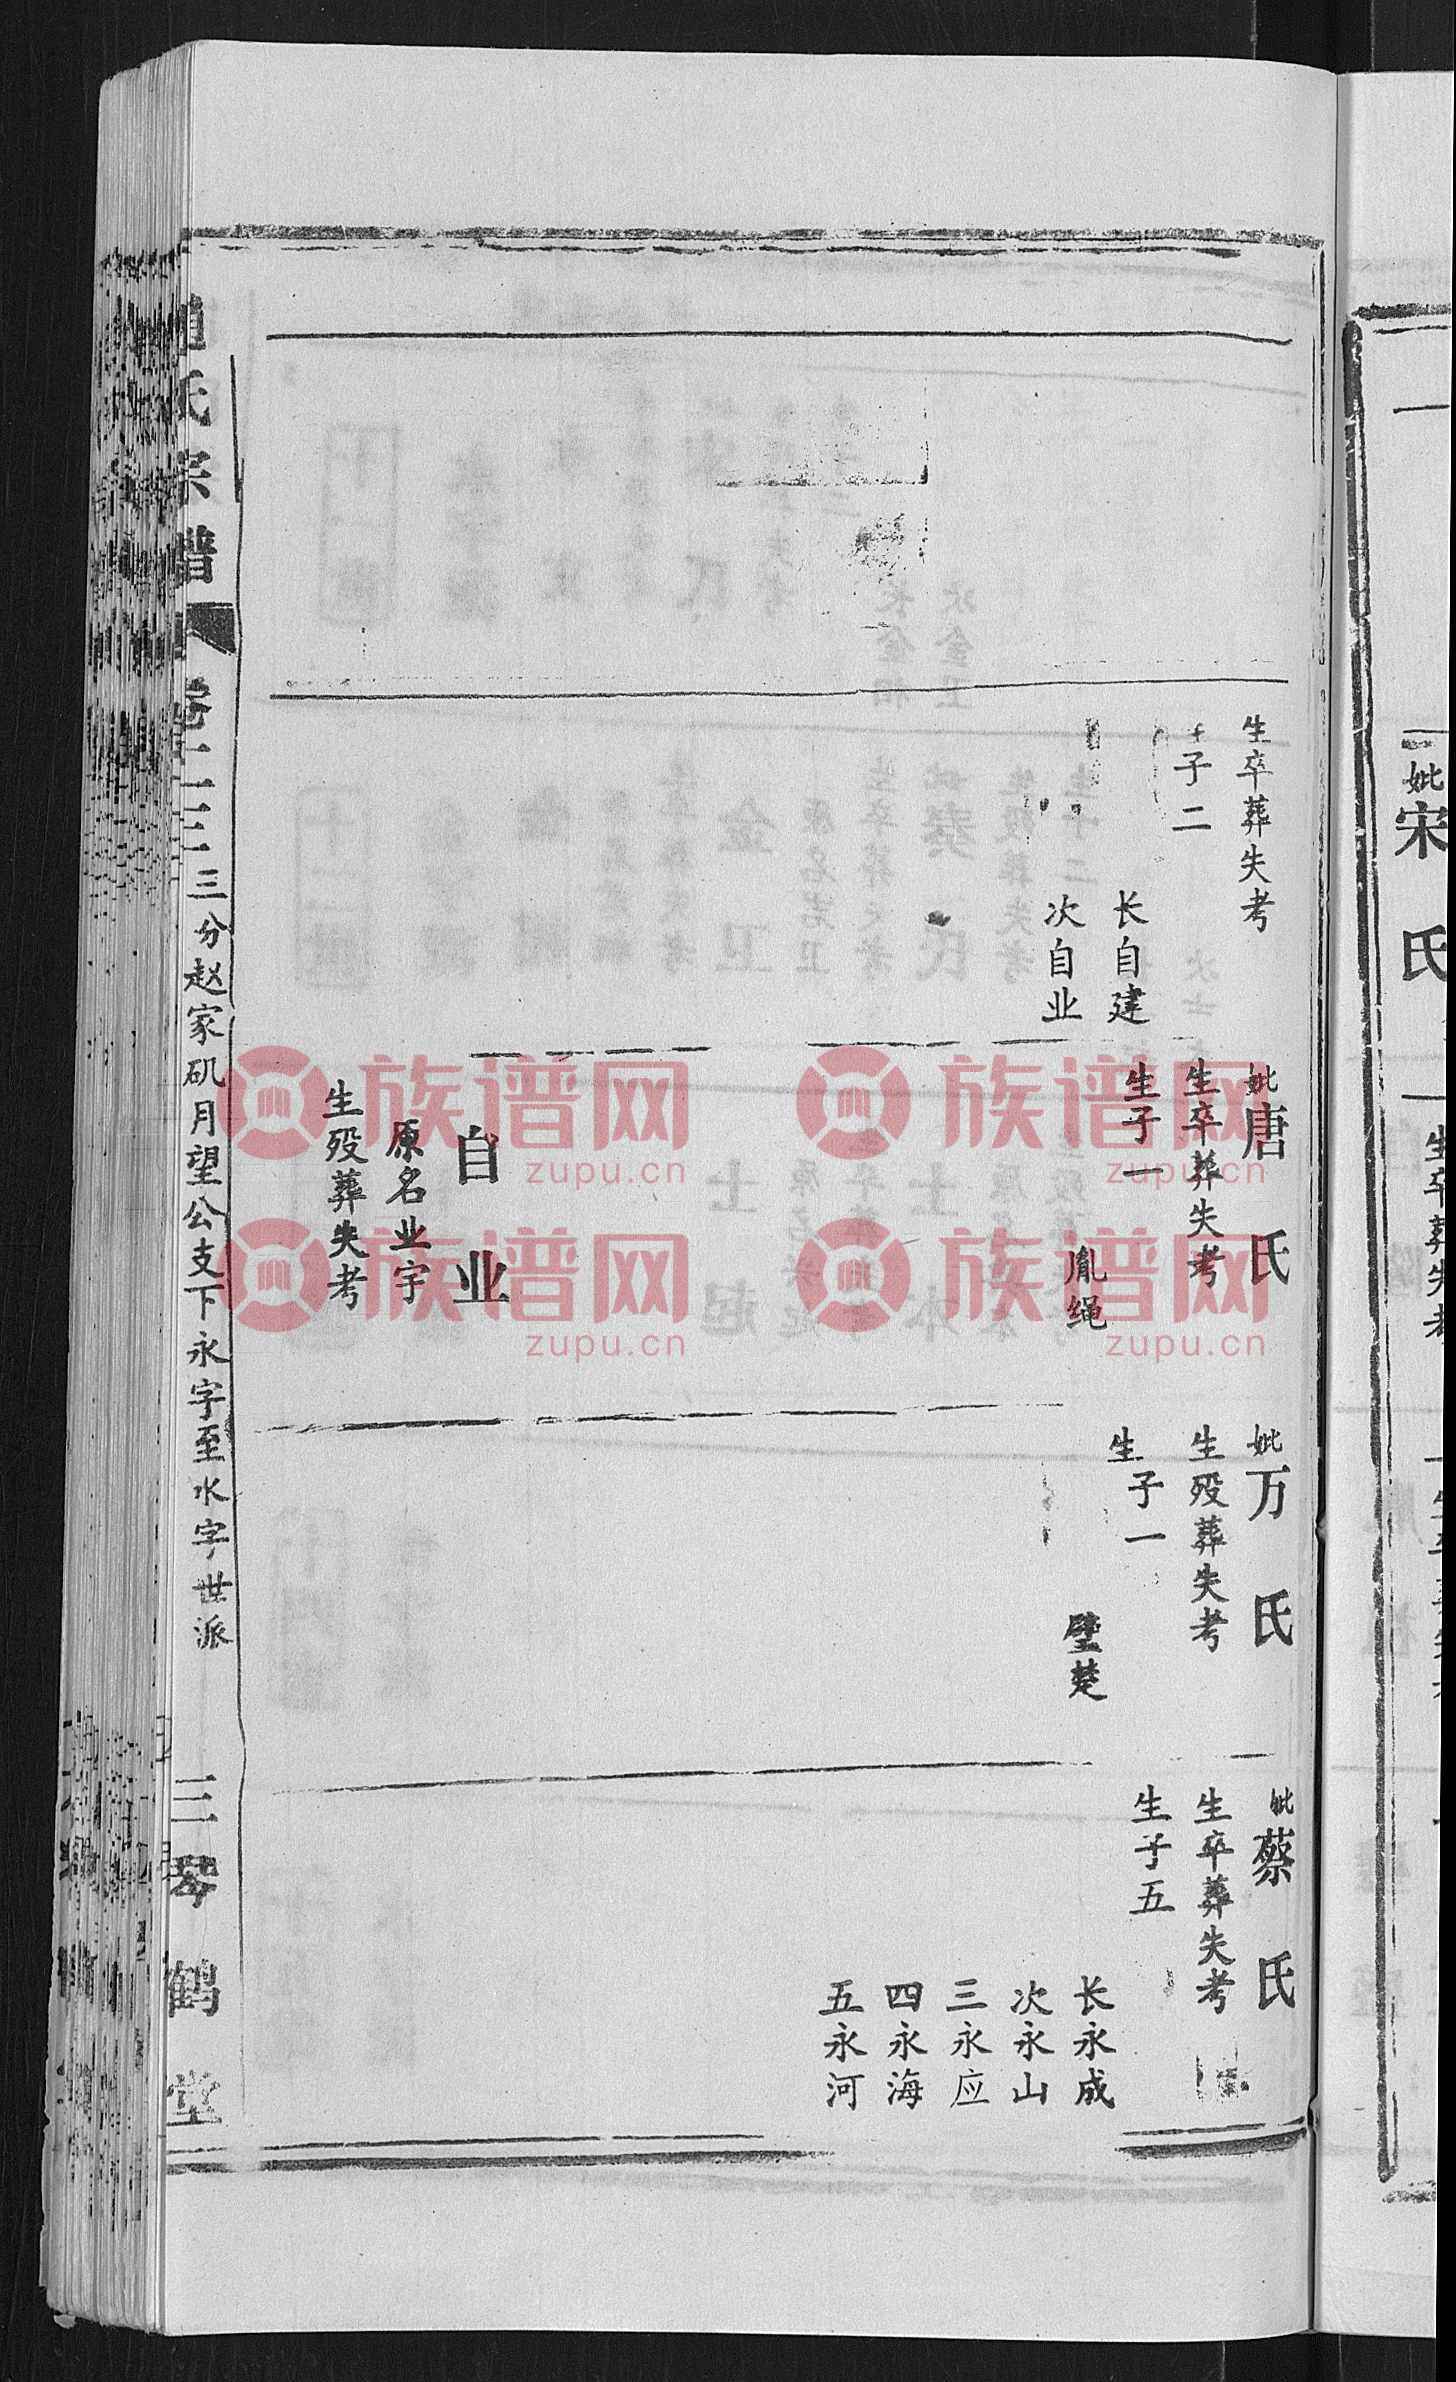 生卒葬失考
生子二
长自建
次自业
妣唐氏
生卒葬失考
生子一
胤绳
自业
原名业宇
生殁葬失考
妣万氏
生殁葬失考
生子一
璧楚
妣蔡氏
生卒葬失考
生子五
长永成
次永山
三永应
四永海
五永河
氏宗谱
三分赵家矶月望公支下永字至水字世派
三
琴鹤堂
妣宋氏
生卒葬失考
族谱网
zupu.cn
族谱网
zupu.cn
族谱网
zupu.cn
族谱网
zupu.cn